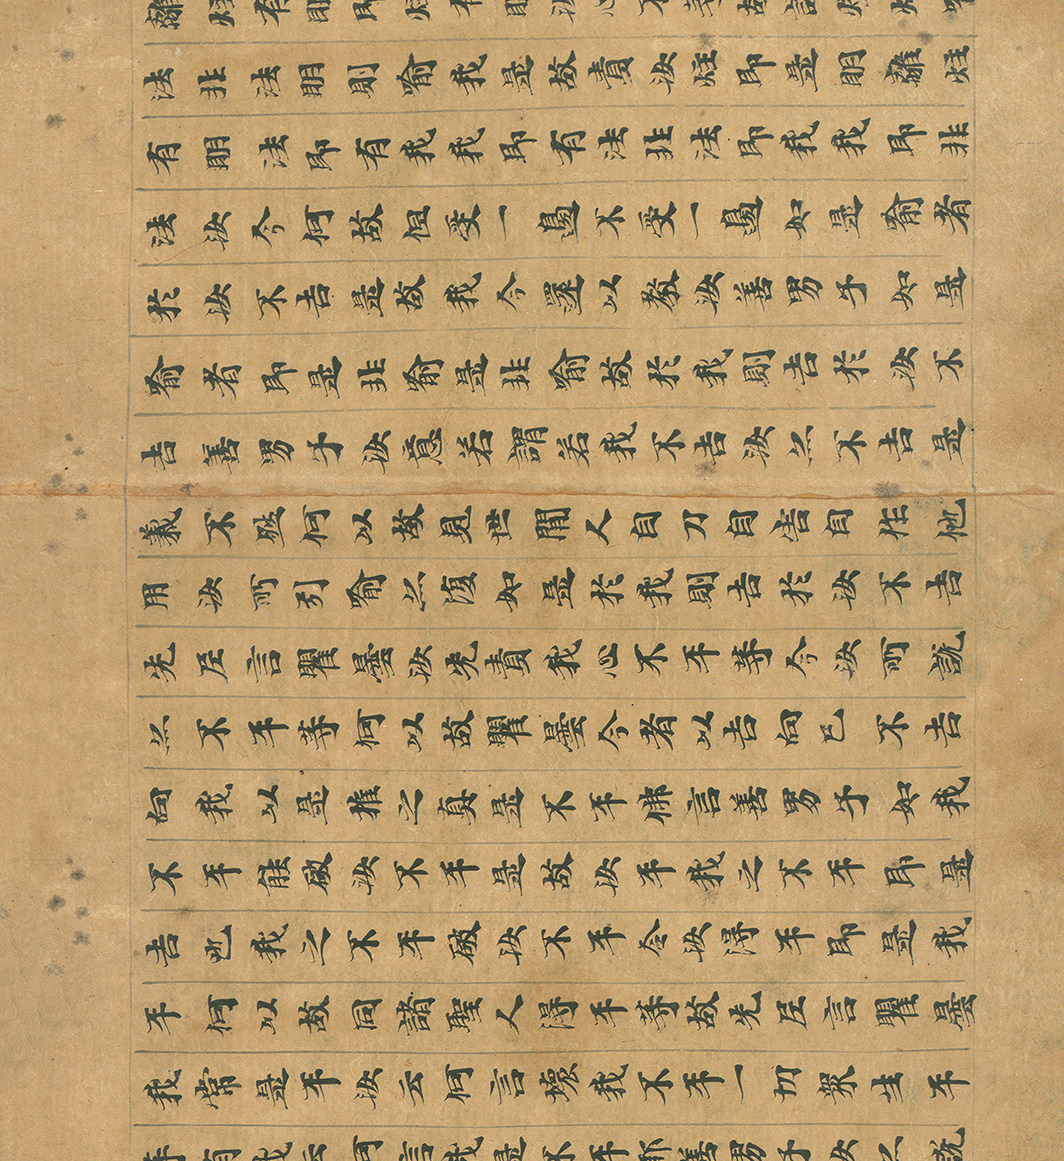 離炷有明即炷有明汝心不等故說炷
法非法明則喻我是故責汝炷即是明離炷
有明法即有我我即有法非法即我我即非
法汝今何故但受一邊不受一邊如是喻者
於汝不吉是故我今還以教汝善男子如是
喻者即是非喻是非喻故於我則吉於汝不
吉善男子汝意若謂若我不吉汝亦不吉是
義不然何以故見世間人自刀自害自作他
用汝所引喻亦復如是於我則吉於汝不吉
先尼言瞿曇汝先責我心不平等今汝所說
亦不平等何以故瞿曇今者以吉向己不吉
向我以是推之真是不平佛言善男子如我
不平能破汝不平是故汝平我之不平即是
吉也我之不平破汝不平令汝得平即是我
平何以故同諸聖人得平等故先尼言瞿曇
我常是平汝云何言壞我不平一切眾生平
等有我云何言我是不平耶善男子汝亦說